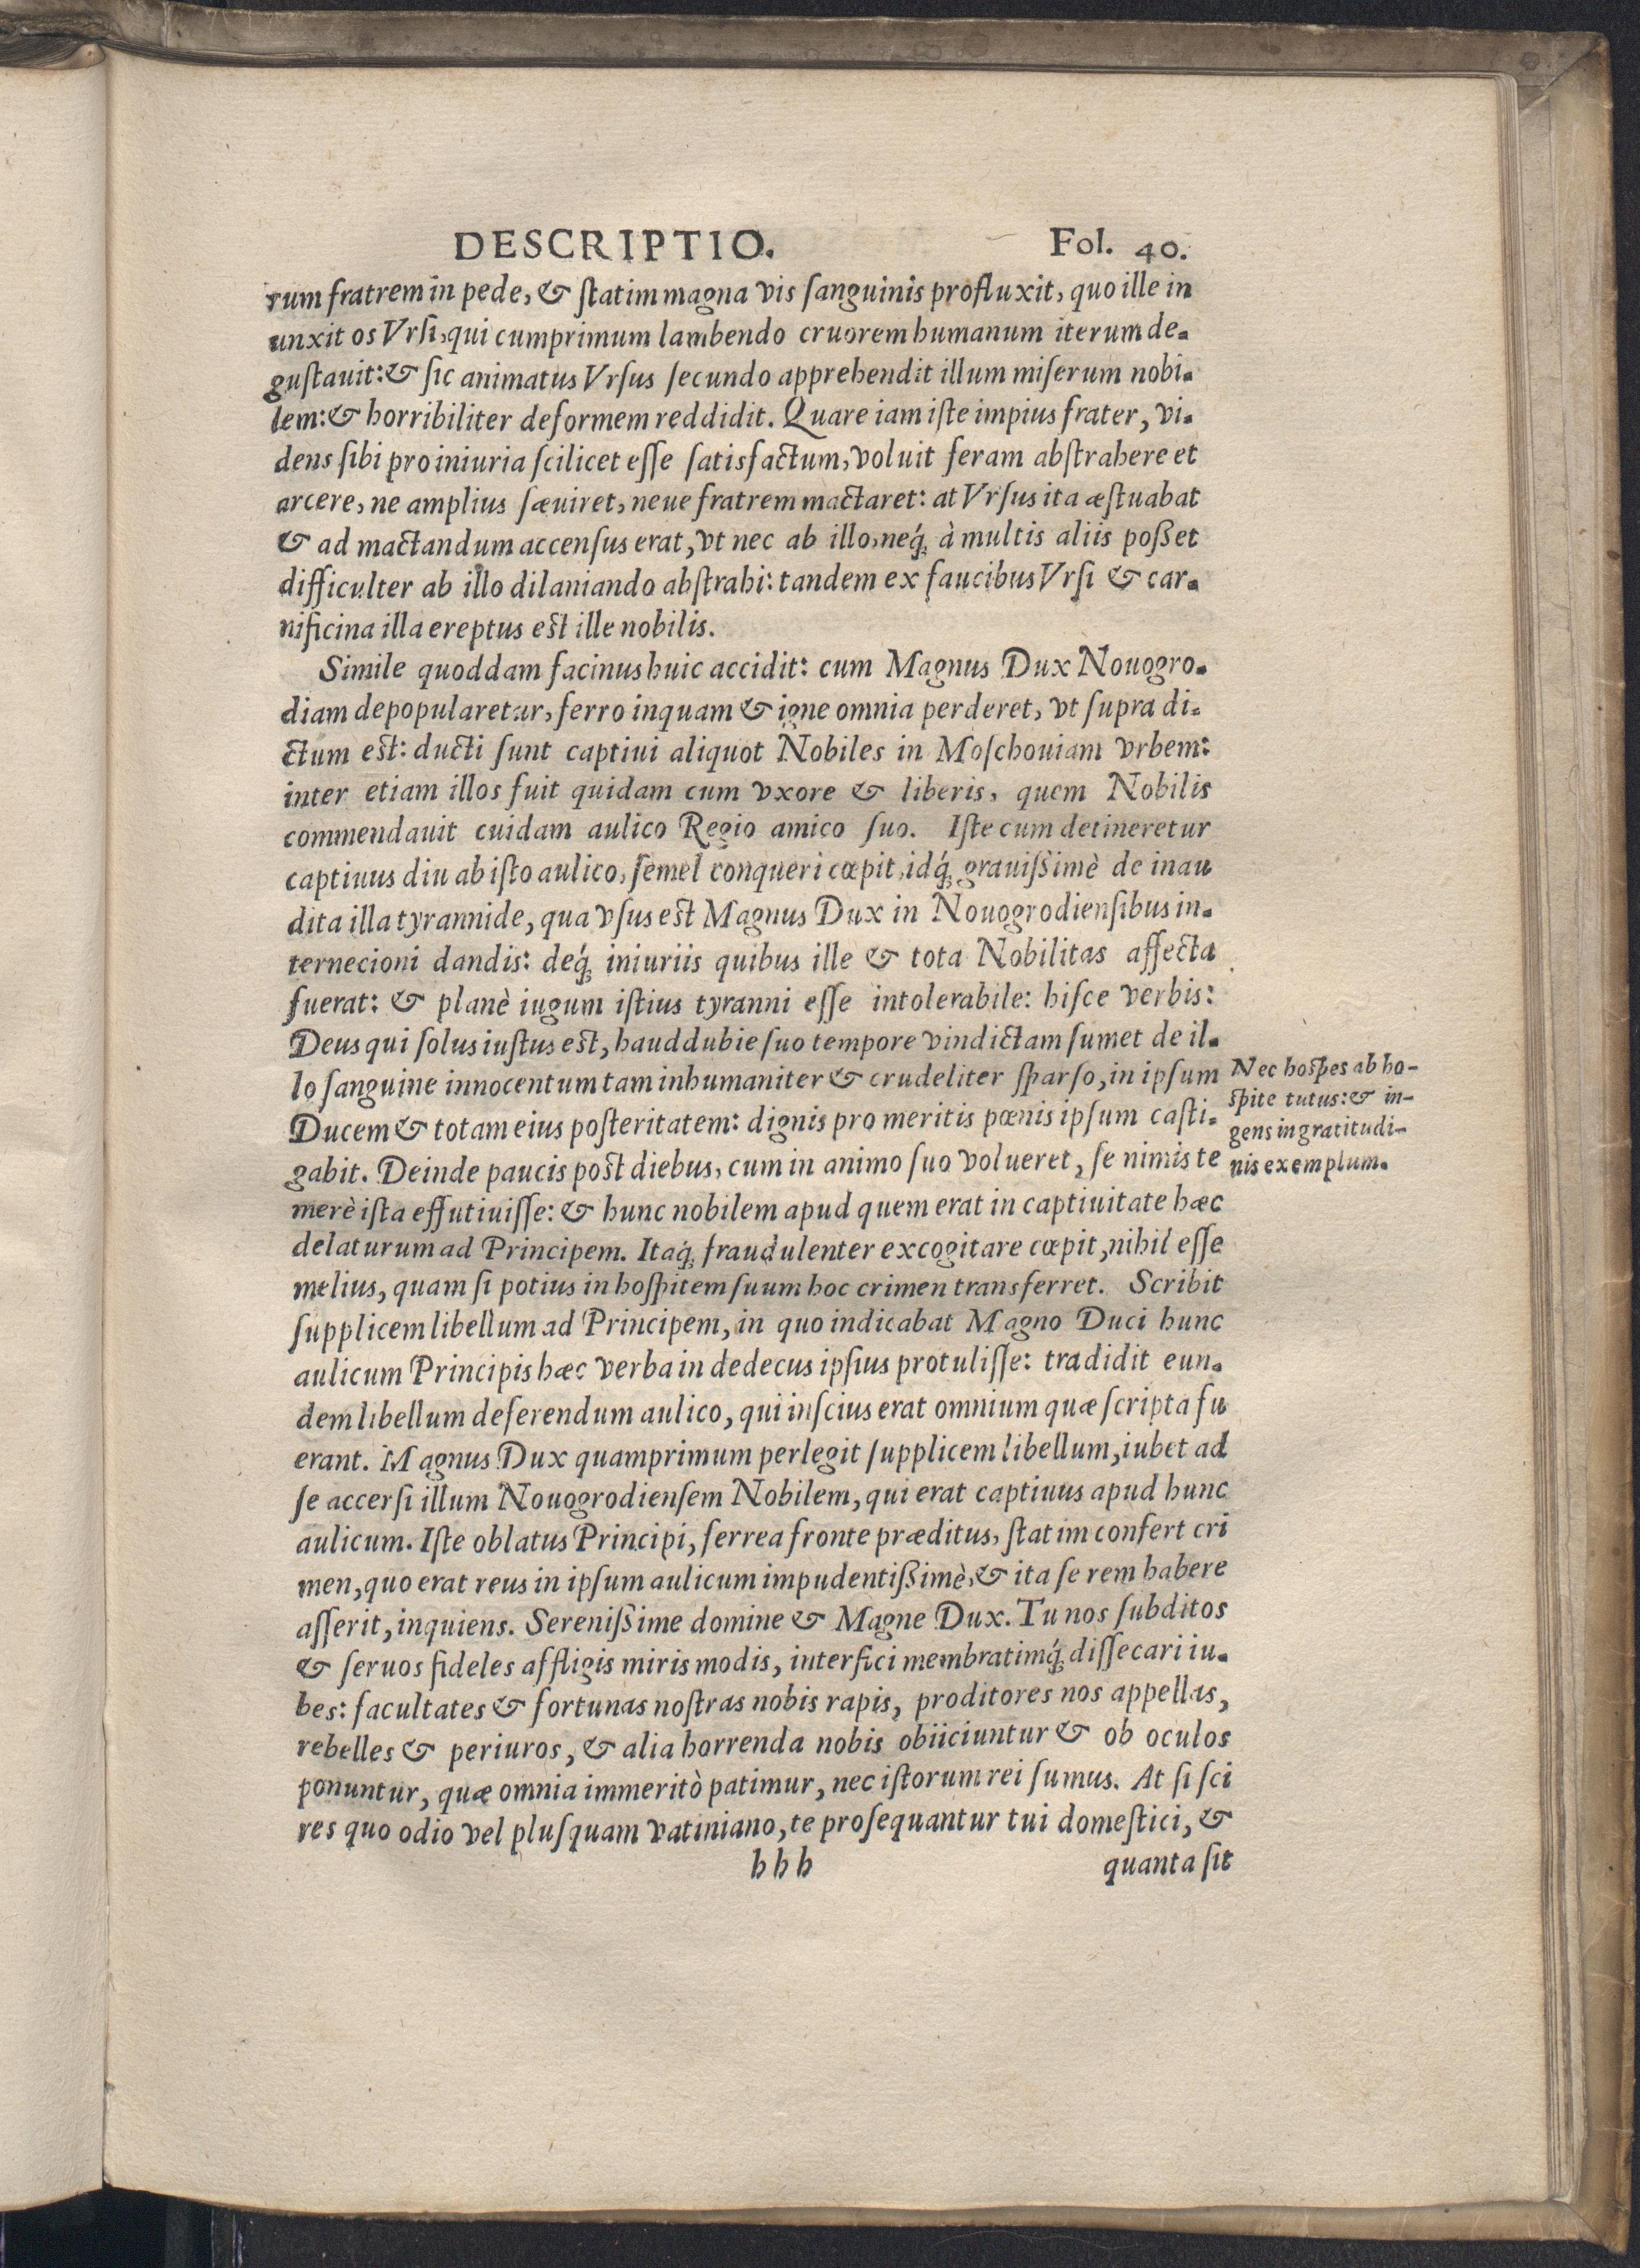 DESCRIPTIO. Fol. 40.
rum fratrem in pede, & ſtatim magna vis ſanguinis profluxit, quo ille in
unxit os Vrſi, qui cumprimum lambendo cruorem humanum iterum de-
guſtauit: & ſic animatus Vrſus ſecundo apprehendit illum miſerum nobi-
lem: & horribiliter deformem reddidit. Quare iam iſte impius frater, vi-
dens ſibi pro iniuria ſcilicet eſſe ſatisfactum, voluit feram abſtrahere et
arcere, ne amplius ſæuiret, neue fratrem mactaret: at Vrſus ita æſtuabat
& ad mactandum accenſus erat, vt nec ab illo, neq́; à multis aliis poßet
difficulter ab illo dilaniando abſtrahi: tandem ex faucibus Vrſi & car-
nificina illa ereptus est ille nobilis.
Simile quoddam facinus huic accidit: cum Magnus Dux Nouogro-
diam depopularetur, ferro inquam & igne omnia perderet, vt ſupra di-
ctum est: ducti ſunt captiui aliquot Nobiles in Moſchouiam vrbem:
inter etiam illos fuit quidam cum vxore & liberis, quem Nobilis
commendauit cuidam aulico Regio amico ſuo. Iſte cum detineretur
captiuus diu ab iſto aulico, ſemel conqueri cœpit, idq́; grauißimè de inau
dita illa tyrannide, qua vſus est Magnus Dux in Nouogrodienſibus in-
ternecioni dandis: deq́; iniuriis quibus ille & tota Nobilitas affecta
fuerat: & planè iugum iſtius tyranni eſſe intolerabile: hiſce verbis:
Deus qui ſolus iuſtus est, haud dubie ſuo tempore vindictam ſumet de il-
lo ſanguine innocentum tam inhumaniter & crudeliter ſparſo, in ipſum
Ducem & totam eius poſteritatem: dignis pro meritis pœnis ipſum caſti-
gabit. Deinde paucis post diebus, cum in animo ſuo volueret, ſe nimis te
merè iſta effutiuiſſe: & hunc nobilem apud quem erat in captiuitate hæc
delaturum ad Principem. Itaq́; fraudulenter excogitare cœpit, nihil eſſe
melius, quam ſi potius in hoſpitem ſuum hoc crimen transferret. Scribit
ſupplicem libellum ad Principem, in quo indicabat Magno Duci hunc
aulicum Principis hæc verba in dedecus ipſius protuliſſe: tradidit eun-
dem libellum deferendum aulico, qui inſcius erat omnium quæ ſcripta fu
erant. Magnus Dux quamprimum perlegit ſupplicem libellum, iubet ad
ſe accerſi illum Nouogrodienſem Nobilem, qui erat captiuus apud hunc
aulicum. Iſte oblatus Principi, ferrea fronte præditus, ſtatim confert cri
men, quo erat reus in ipſum aulicum impudentißimè, & ita ſe rem habere
aſſerit, inquiens. Serenißime domine & Magne Dux. Tu nos ſubditos
& ſeruos fideles affligis miris modis, interfici membratimq́; diſſecari iu-
bes: facultates & fortunas noſtras nobis rapis, proditores nos appellas,
rebelles & periuros, & alia horrenda nobis obiiciuntur & ob oculos
ponuntur, quæ omnia immeritò patimur, nec iſtorum rei ſumus. At ſi ſci
res quo odio vel pluſquam vatiniano, te proſequantur tui domeſtici, &
hhh quanta ſit
Nec hoſpes ab ho-
ſpite tutus: & in-
gens ingratitudi-
nis exemplum.